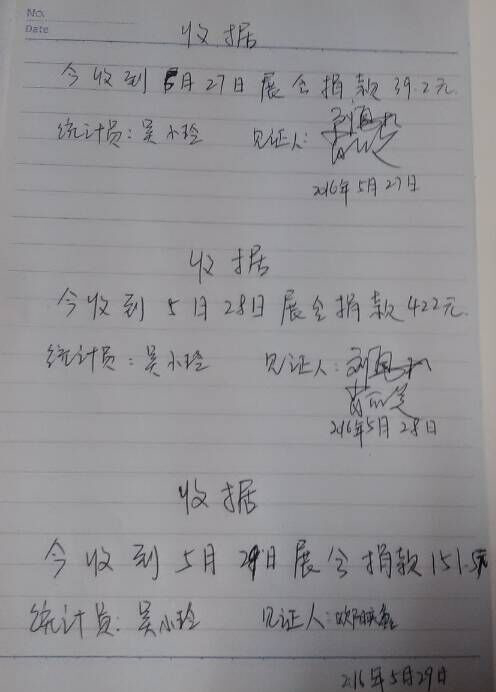 No.
Date
收据
今收到5月27日展会捐款39.2元.
统计员:吴小玲 见证人:
2016年5月27日
收据
今收到5月28日展会捐款422元.
统计员:吴小玲 见证人:
2016年5月28日
收据
今收到5月29日展会捐款151.5元
统计员:吴小玲 见证人:
2016年5月29日